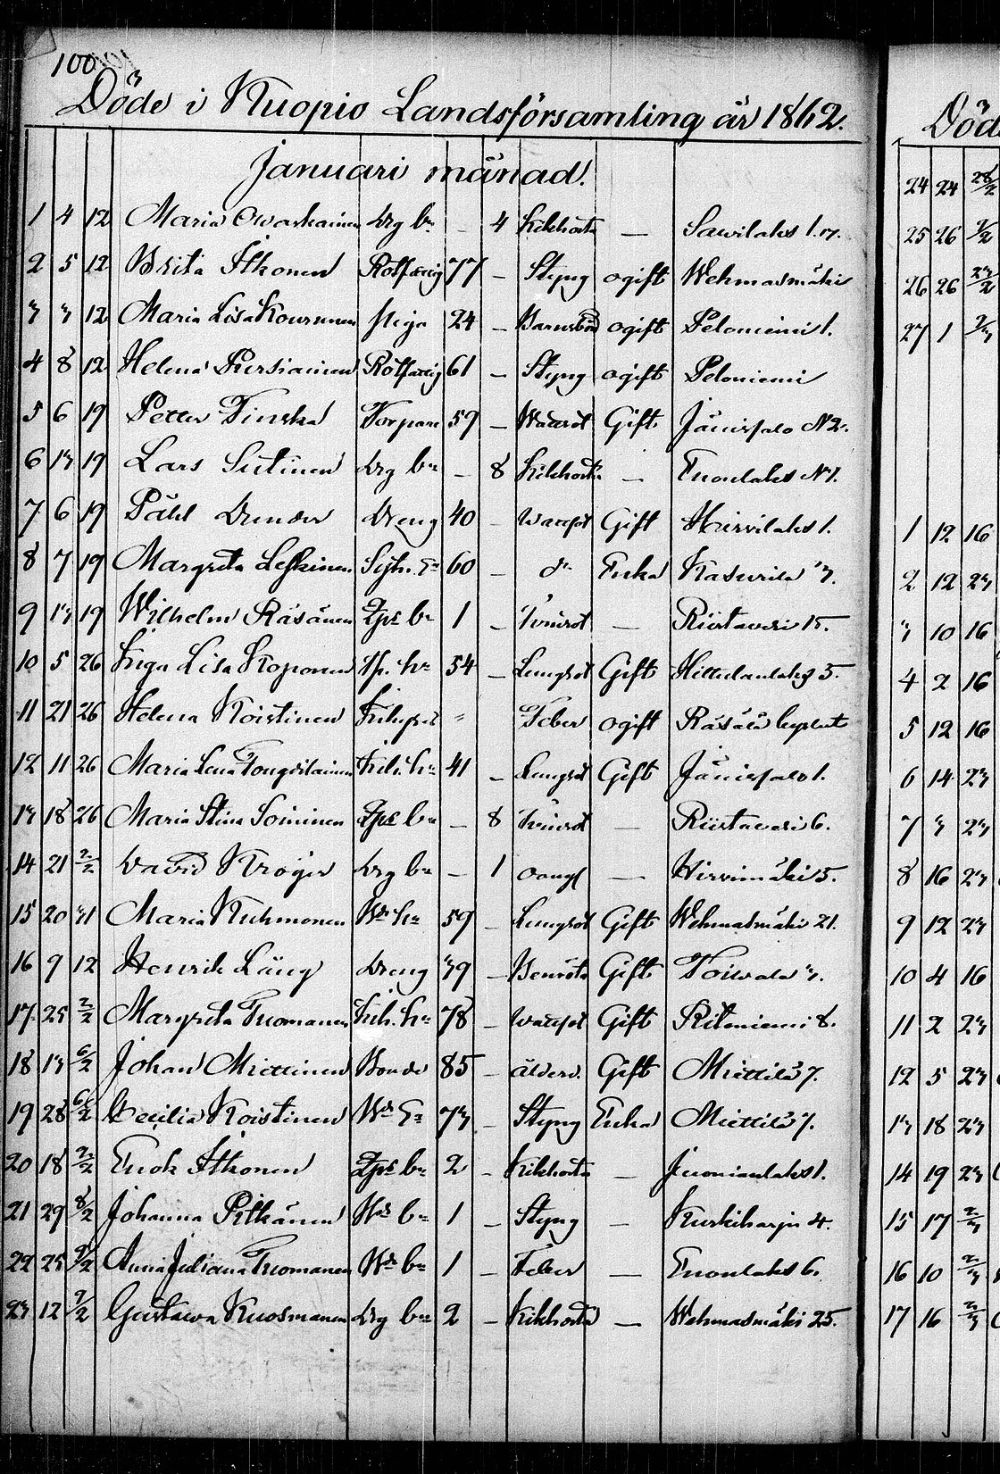 100
Döde i Kuopio Landsförsamling år 1862.
Januari månad.
1 4 12 Maria Owaskainen Drg bn – 4 Kikhosta – Sawilaks 17.
2 5 12 Brita Itkonen Rotfattig 77 – Styng ogift Wehmasmäki
3 3 12 Maria Lisa Kourunen Piga 24 – Barnsbörd ogift Peloniemi 1.
4 8 12 Helena Persiainen Rotfattig 61 – Styng ogift Peloniemi
5 6 19 Petter Finska Torpare 59 – Wattsot Gift Jänissalo N 2.
6 13 19 Lars Sutinen Drg bn – 8 Kikhosta – Enonlaks N 1.
7 6 19 Påhl Dunder Dreng 40 – Wattsot Gift Hirvilaks 1.
8 7 19 Margreta Leskinen Sytn. Ea 60 – do Enka Kasurila 3.
9 13 19 Wilhelm Räsänen Tprs bn 1 – Tvinsot – Riistavesi 15.
10 5 26 Inga Lisa Koponen hu 54 – Lungsot Gift Hiltulanlaks 5.
11 21 26 Helena Koistinen " Feber ogift Räsälä
12 11 26 Maria Lena hu 41 – Lungsot Gift Jänissalo 1.
13 18 26 Maria Stina Soininen Tprs bn – 8 Tvinsot – Riistavesi 6.
14 21 2/2 David Kröger Drg bn – 1 oangf – Hirvimäki 5.
15 20 31 Maria Kuhmonen hu 59 – Lungsot Gift Wehmasmäki 21.
16 9 12 Henrik Läng Dreng 39 – Gift Toivala 3.
17 25 2/2 Margreta Tuomanen Inh. hu 78 – Wattsot Gift Ritoniemi 8.
18 13 6/2 Johan Miettinen Bonde 85 – ålderd. Gift Miettilä 7.
19 28 6/2 Cecilia Koistinen Ea 73 – Styng Enka Miettilä 7.
20 18 2/2 Enok Itkonen Tprs bn 2 – Kikhosta – Juonionlaks 1.
21 29 8/2 Johanna Pitkänen bn 1 – Styng – Kurkiharju 4.
22 25 9/2 Anna Juliana Tuomanen bn 1 – Feber – Enonlaks 6.
23 12 2/2 Gustawa Kuosmanen Drg bn 2 – Kikhosta – Wehmasmäki 25.
Död
24 24 28/2
25 26 2/2
26 26 23/2
27 1 2/3
1 12 16
2 12 23
3 10 16
4 2 16
5 12 16
6 14 23
7 3 23
8 16 23
9 12 23
10 4 16
11 2 23
12 5 23
13 18 23
14 19 23
15 17 2/3
16 10 2/3
17 16 2/3